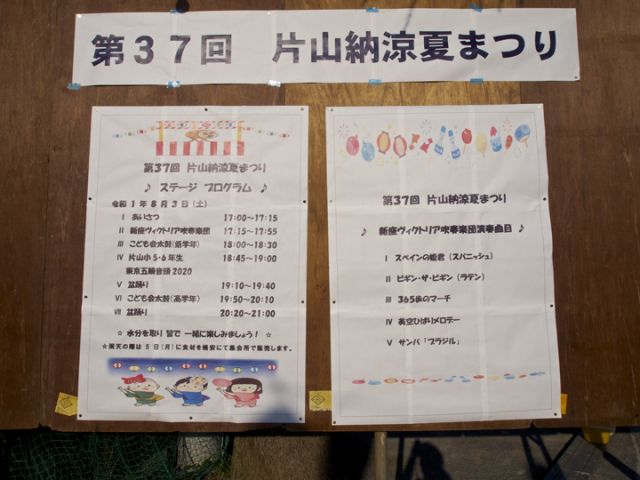 第37回 片山納涼夏まつり
第37回 片山納涼夏まつり
♪ ステージ プログラム ♪
令和1年8月3日(土)
I あいさつ 17:00～17:15
II 新座ヴィクトリア吹奏楽団 17:15～17:55
III こども会太鼓(低学年) 18:00～18:30
IV 片山小5・6年生 18:45～19:00
東京五輪音頭2020
V 盆踊り 19:10～19:40
VI こども会太鼓(高学年) 19:50～20:10
VII 盆踊り 20:20～21:00
☆ 水分を取り 皆で 一緒に楽しみましょう! ☆
☆雨天の場は 5日(月)に食材を格安にて集会所で販売します。
第37回 片山納涼夏まつり
♪ 新座ヴィクトリア吹奏楽団演奏曲目 ♪
I スペインの姫君(スパニッシュ)
II ビギン・ザ・ビギン(ラテン)
III 365歩のマーチ
IV 美空ひばりメロデー
V サンバ「ブラジル」